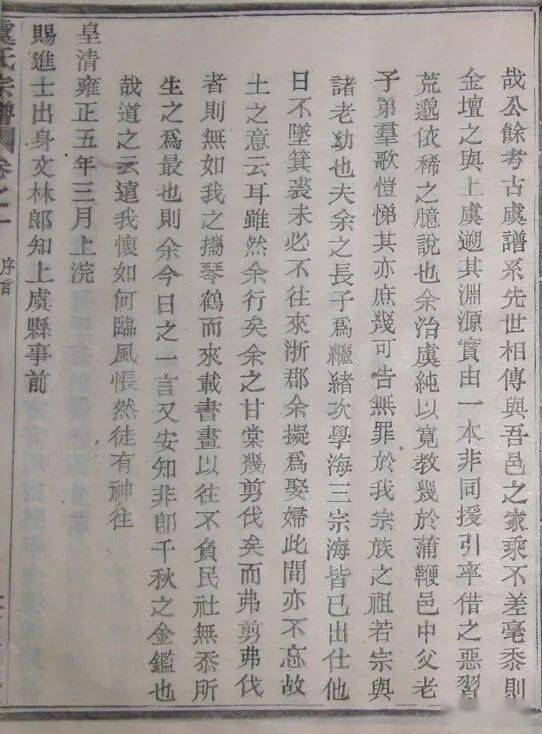 哉公餘考古虞譜系先世相傳與吾邑之家乘不差毫黍則
金壇之與上虞遡其淵源實由一本非同援引率借之惡習
荒邈依稀之臆說也余治虞純以寬教幾於蒲鞭邑中父老
子弟羣歌愷悌其亦庶幾可告無罪於我宗族之祖若宗與
諸老幼也夫余之長子爲繼緒次學海三宗海皆已出仕他
日不墜箕裘未必不往來浙郡余擬爲娶婦此間亦不忘故
土之意云耳雖然余行矣余之甘棠幾剪伐矣而弗剪弗伐
者則無如我之攜琴鶴而來載書畫以往不負民社無忝所
生之爲最也則余今日之一言又安知非卽千秋之金鑑也
哉道之云遠我懷如何臨風悵然徒有神往
皇清雍正五年三月上浣
賜進士出身文林郎知上虞縣事前
虞氏宗譜 卷之一 序言